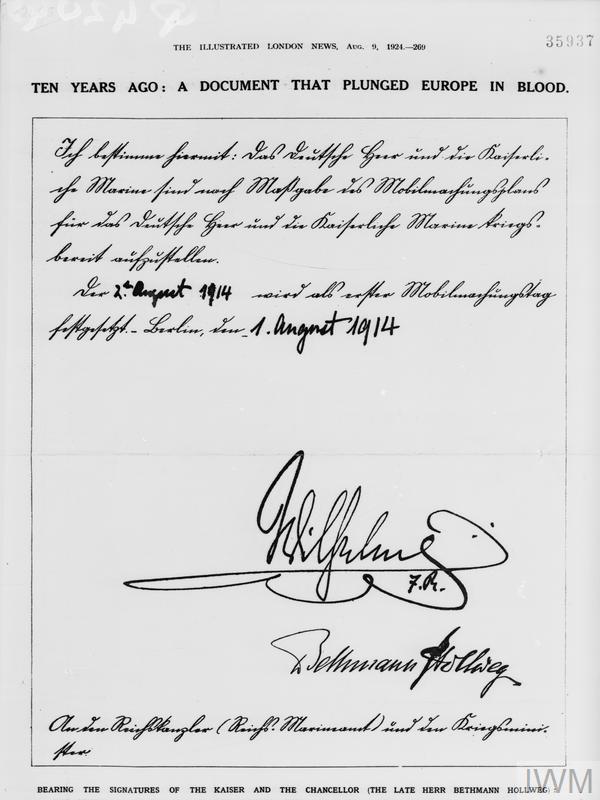 35937
THE ILLUSTRATED LONDON NEWS, AUG. 9, 1924.—269
TEN YEARS AGO: A DOCUMENT THAT PLUNGED EUROPE IN BLOOD.
Ich bestimme hiermit: Das Deutsche Heer und die Kaiserli-
che Marine sind nach Maßgabe des Mobilmachungsplans
für das Deutsche Heer und die Kaiserliche Marine kriegs-
bereit aufzustellen.
Der 2te August 1914 wird als erster Mobilmachungstag
festgesetzt.- Berlin, den 1. August 1914
Wilhelm
I.R.
Bethmann Hollweg
An den Reichskanzler (Reichs-Marineamt) und den Kriegsmini-
ster.
BEARING THE SIGNATURES OF THE KAISER AND THE CHANCELLOR (THE LATE HERR BETHMANN HOLLWEG):
IWM